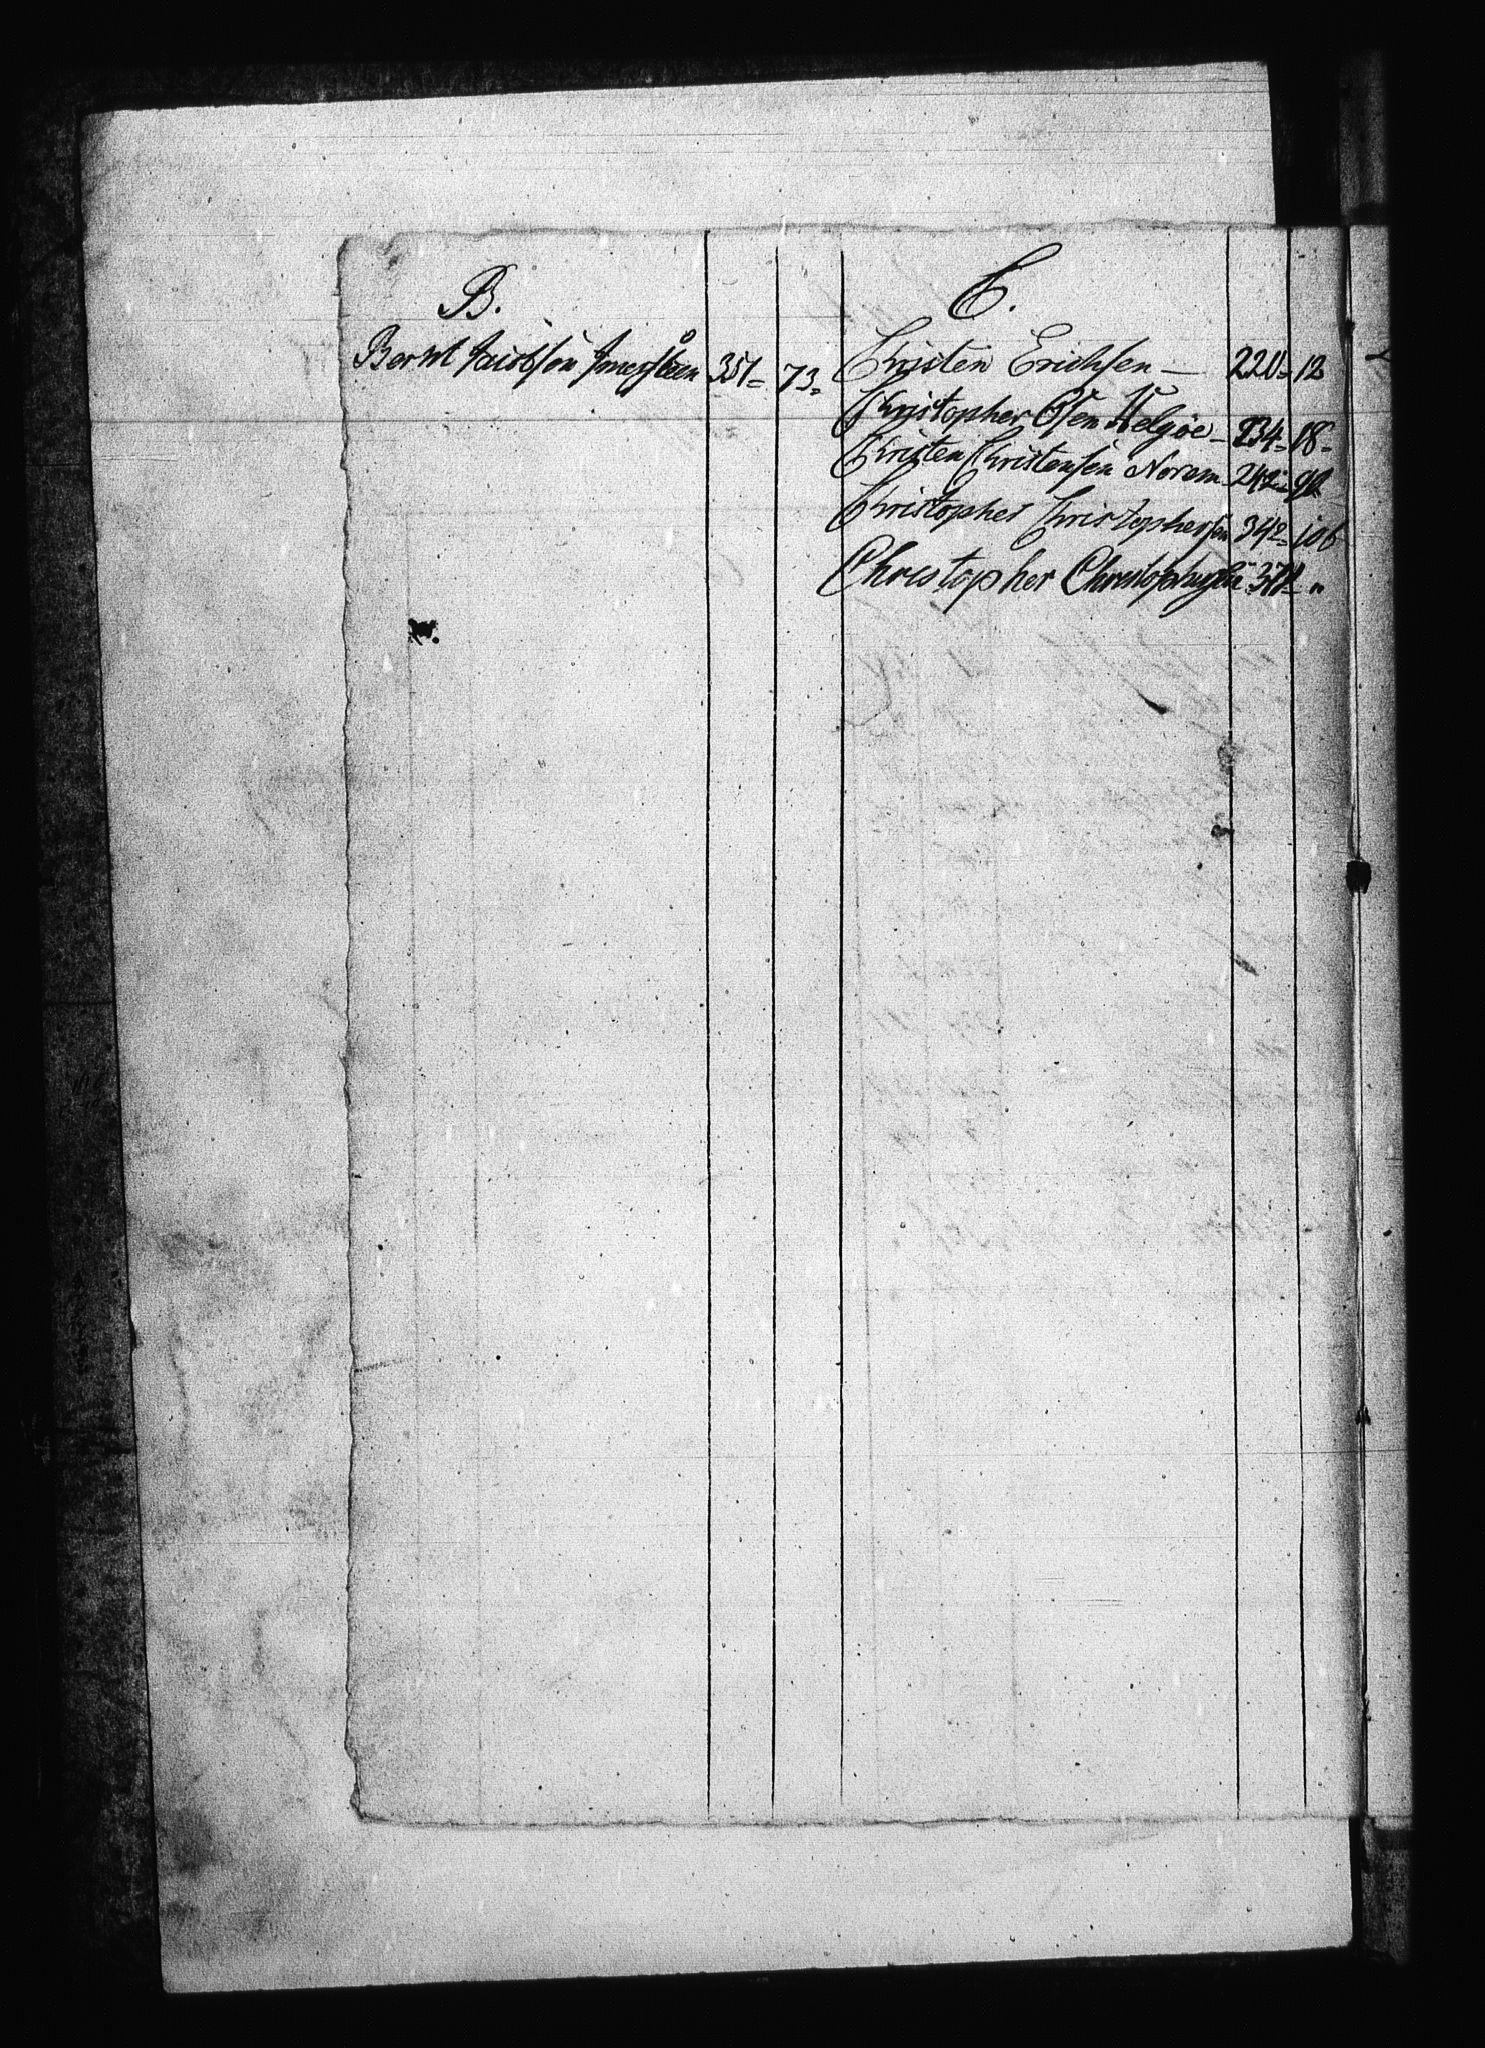 B.
Bernt Jacobsen 351= 73=
C.
Christen Erichsen — 220= 12
Christopher Olsen Helgøe — 234= 18=
Christen Christensen Norem 242=
Christopher Christophersen 342= 106
Christopher Christophersen